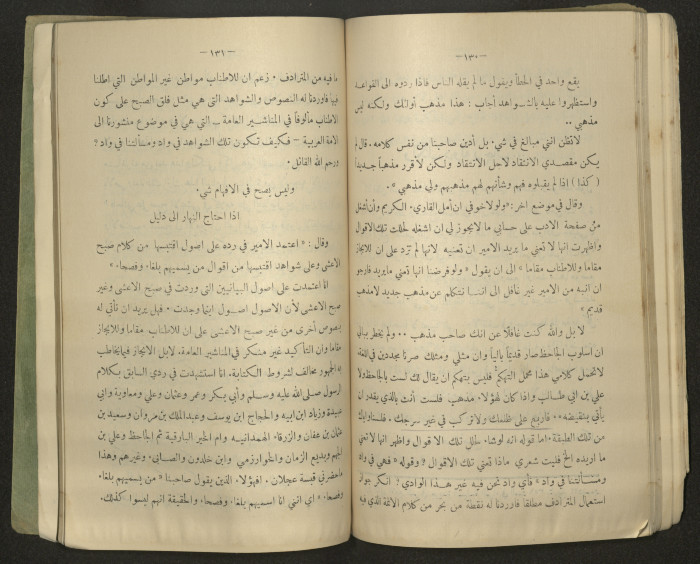 — ١٣٠ —
يقع واحد في الخطأ ويقول ما لم يقله الناس فاذا ردوه الى القواعد
واستظهروا عليه بالشواهد أجاب : هذا مذهب أولئك ولكنه ليس
مذهبي ..
لا تظن انني مبالغ في شي. بل أدين صاحبنا من نفس كلامه . قال لم
يكن مقصدي الانتقاد لاجل الانتقاد ولكن لأقرر مذهباً جديداً
( كذا ) اذا لم يقبلوه فهم وشأنهم لهم مذهبهم ولي مذهبي » .
وقال في موضع اخر : « ولولا خوفي ان أمل القاري. الكريم وأن أشغل
من صفحة الادب على حسابي ما لا يجوز لي ان اشغله لحللت تلك الاقوال
واظهرت انها لا تعني ما يريد الامير ان تعنيه لانها لم تزد على ان للايجاز
مقاما وللاطناب مقاما » الى ان يقول « ولو فرضنا انها تعني ما يريد فارجو
ان انبه من الامير غير غافل الى اننا نتكلم عن مذهب جديد لا مذهب
قديم »
لا بل والله كنت غافلاً عن انك صاحب مذهب .. ولم يخطر ببالي
ان اسلوب الجاحظ صار قديماً بالياً وان مثلي ومثلك صرنا جددين في اللغة
لا تحمل كلامي هذا محمل التهكم فليس بتهكم ان يقال لك لست بالجاحظ ولا
علي بن ابي طالب واذا كان لهؤلاء مذهب فلست أنت بالذي يقدر ان
يأتي بنقيضه .. فاربع على ظلعك ولا تركب في غير سرجك . فلسنا وايك
من تلك الطبقة . اما قوله انه لو شاء لحلل تلك الاقوال واظهر انها لا تعني
ما اريده الخ فليت شعري ماذا تعني تلك الاقوال ? وقوله « فهي في واد
ومسألتنا في واد » فأي واد نحن فيه غير هذا الوادي ? انكر جواز
استعمال المترادف مطلقا فاوردنا له نقطة من بحر من كلام الائمة الذي فيه
— ١٣١ —
ما فيه من المترادف . زعم ان للاطناب مواطن غير المواطن التي اطلنا
فيها فاوردنا له النصوص والشواهد التي هي مثل فلق الصبح على كون
الاطناب مألوفاً في المناشير العامة – التي هي في موضوع منشورنا الى
الامة العربية – فكيف تكون تلك الشواهد في واد ومسألتنا في واد ?
ورحم الله القائل .
وليس يصح في الافهام شي.
اذا احتاج النهار الى دليل
وقال : « اعتمد الامير في رده على اصول اقتبسها من كلام صبح
الاعشى وعلى شواهد اقتبسها من اقوال من يسميهم بلغاء وفصحاء »
انا اعتمدت على أصول البيانيين التي وردت في صبح الاعشى وغير
صبح الاعشى لأن الاصول اصول ابنما وجدت . فهل يريد ان نأتي له
بنصوص أخرى من غير صبح الاعشى على ان للاطناب مقاما وللايجاز
مقاما وان التأكيد غير منكر في المناشير العامة . لا بل الايجاز فيما يخاطب
به الجمهور مخالف لشروط الكتابة . انا استشهدت في ردي السابق بكلام
الرسول صلى الله عليه وسلم وأبي بكر وعمر وعثمان وعلي ومعاوية وابي
عبيدة وزياد ابن ابيه والحجاج ابن يوسف وعبد الملك بن مروان وسعيد بن
عثمان بن عفان والزرقاء الهمدانيه وام الخير البارقية ثم الجاحظ وعلي بن
الجهم وبديع الزمان والخوارزمي وابن خلدون والصابي. وغيرهم وهذا
ما حضرني قبسة عجلان . افهؤلاء الذين يقول صاحبنا « من يسميهم بلغاء
وفصحاء » اي انني انا اسميهم بلغاء وفصحاء والحقيقة انهم ليسوا كذلك .